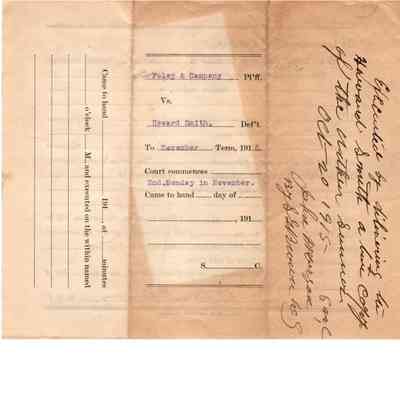 Foley & Company Pl'ff.
Vs.
Howard Smith. Def't.
To November Term, 191
Court commences
2nd. Monday in November.
Came to hand day of
, 191
S. C.
Came to hand 191 , at minutes
o'clock M., and executed on the within named
Executed by delivering to
Howard Smith a true copy
of the within summons
Oct 20 1915
John
By